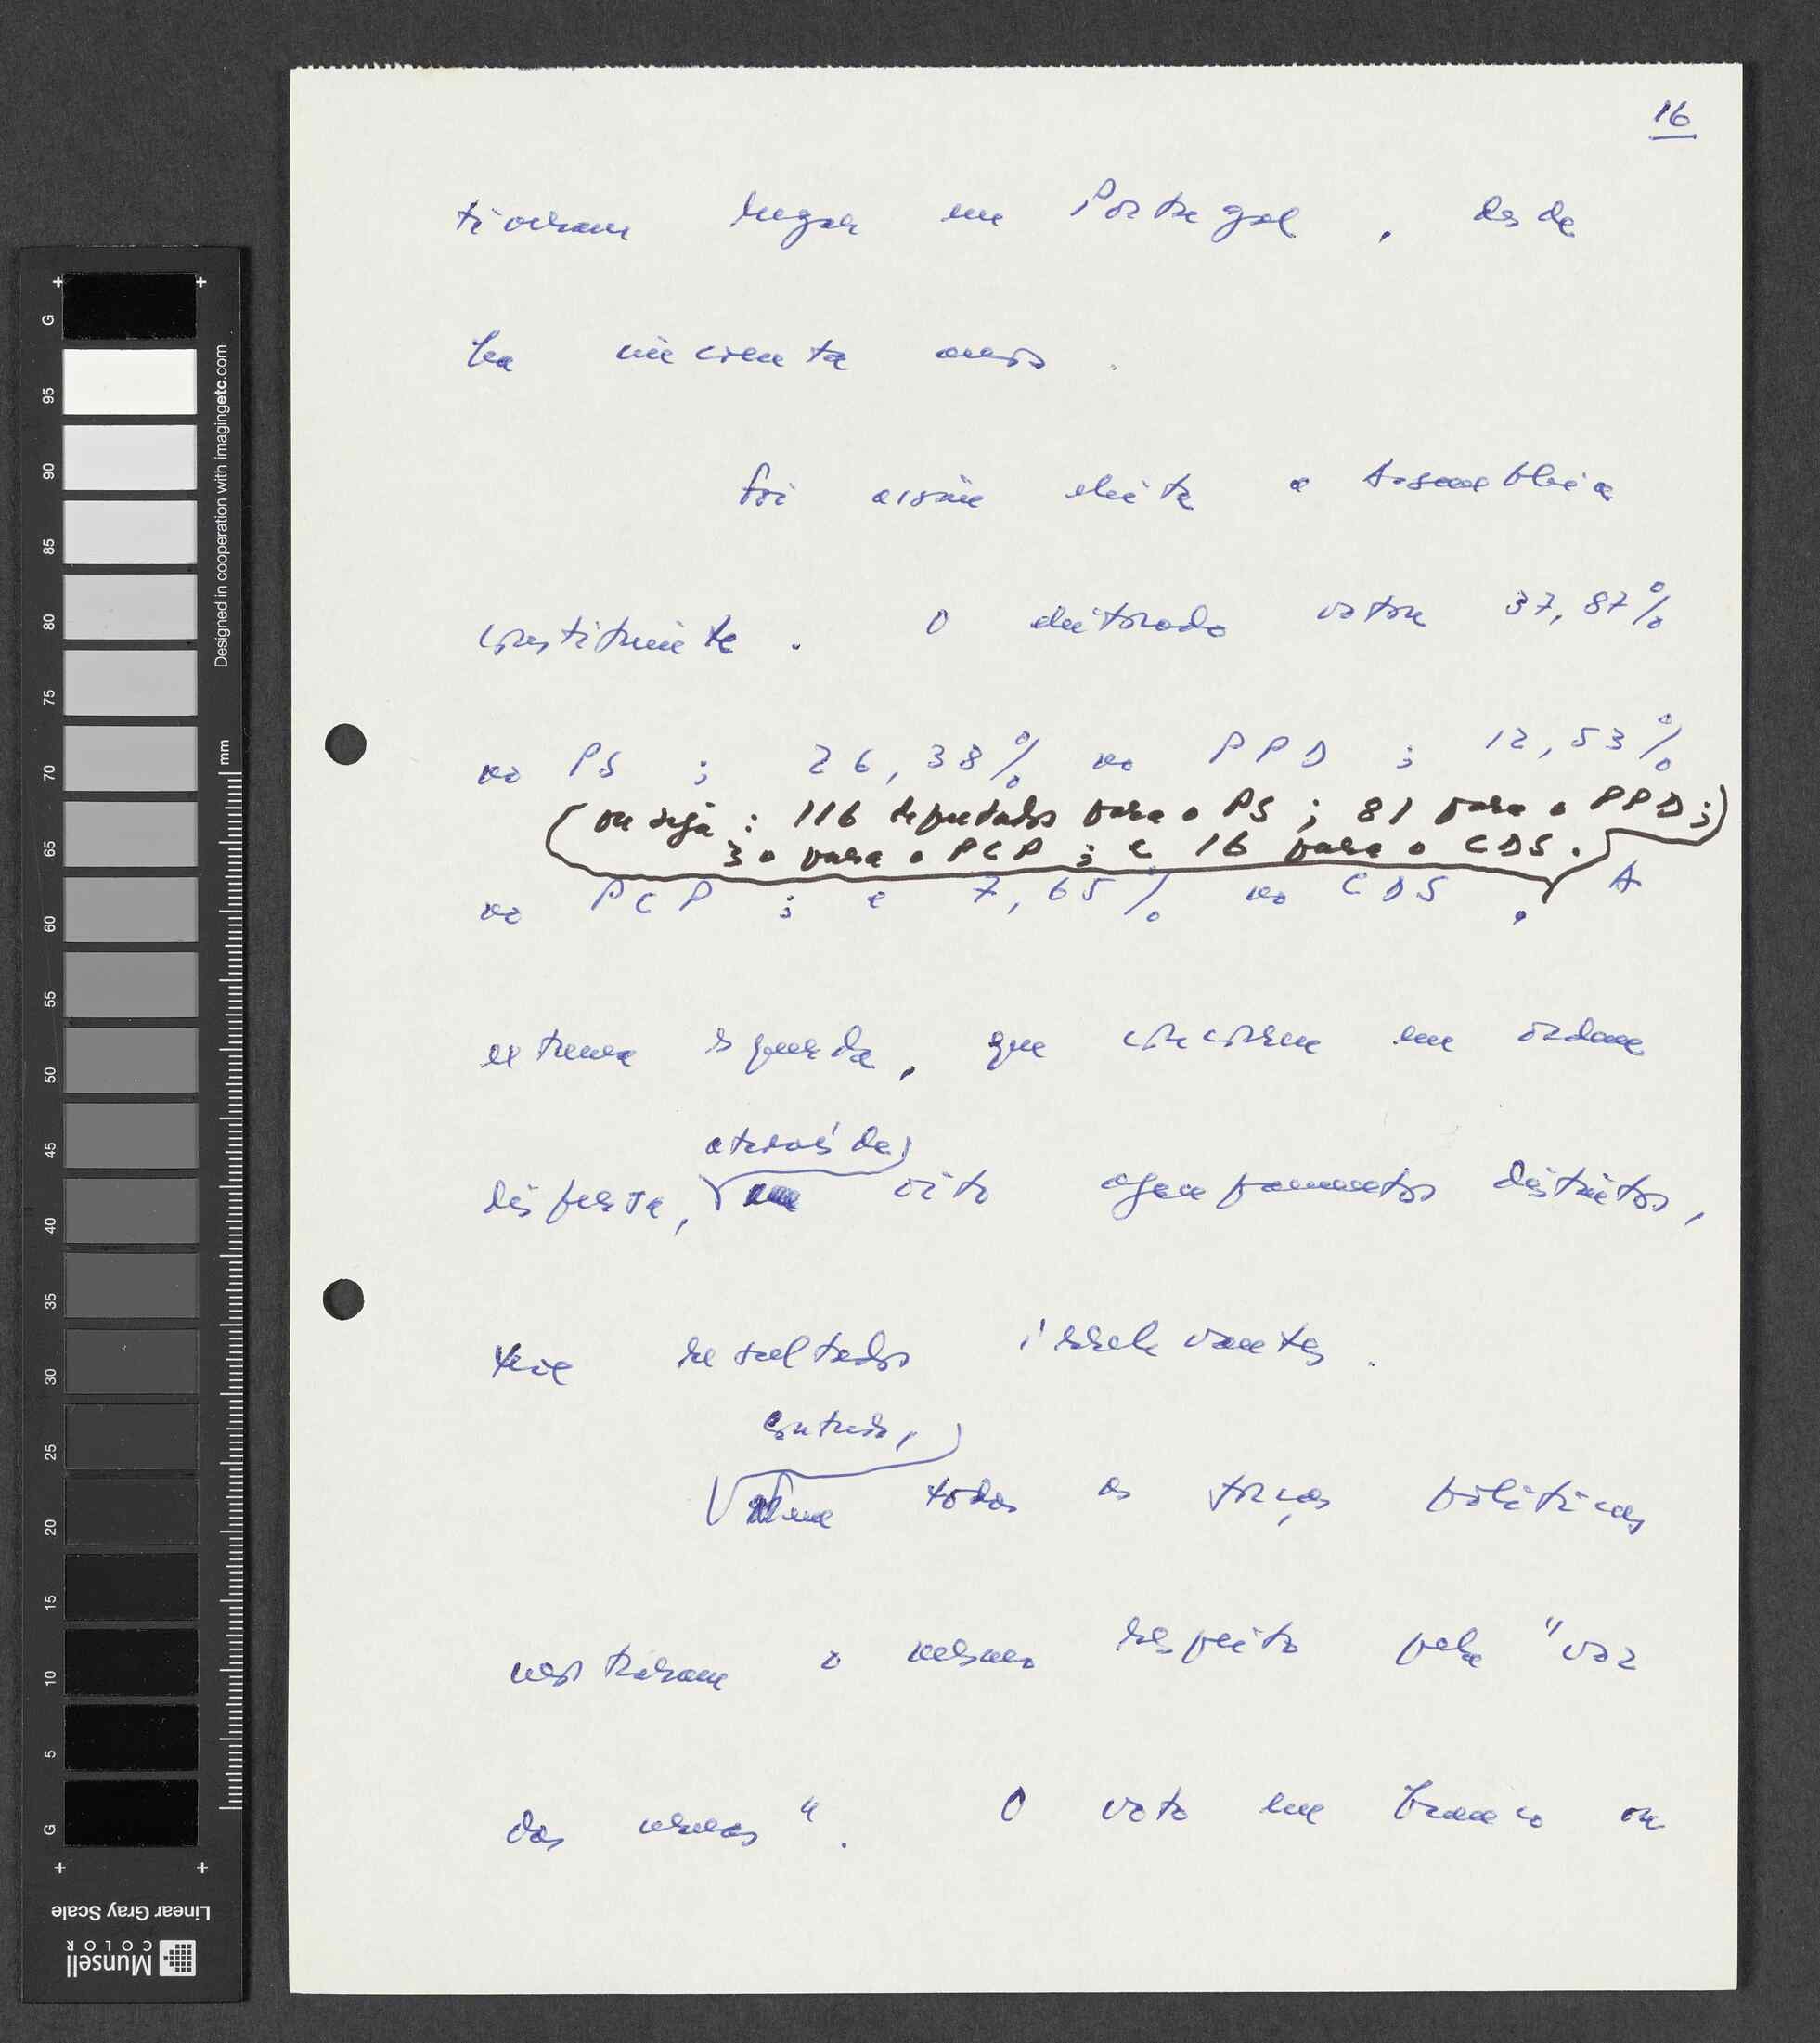 16
tiveram lugar em Portugal, desde
há cincoenta anos.
Foi assim eleita a Assembleia
constituinte. O eleitorado votou 37,87%
no PS; 26,38% no PPD; 12,53%
(ou seja: 116 deputados para o PS; 81 para o PPD;
30 para o PCP; e 16 para o CDS.)
no PCP; e 7,65% no CDS. A
extrema esquerda, que concorreu em ordem
através de
dispersa, oito agrupamentos distintos,
teve resultados irrelevantes.
Contudo,
todas as forças políticas
mostraram o mesmo respeito pela "voz
das urnas". O voto em branco ou
G
95
90
85
80
75
70
65
60
55
50
45
40
35
30
25
20
15
10
5
G
mm
Designed in cooperation with imagingetc.com
Linear Gray Scale
Munsell
COLOR